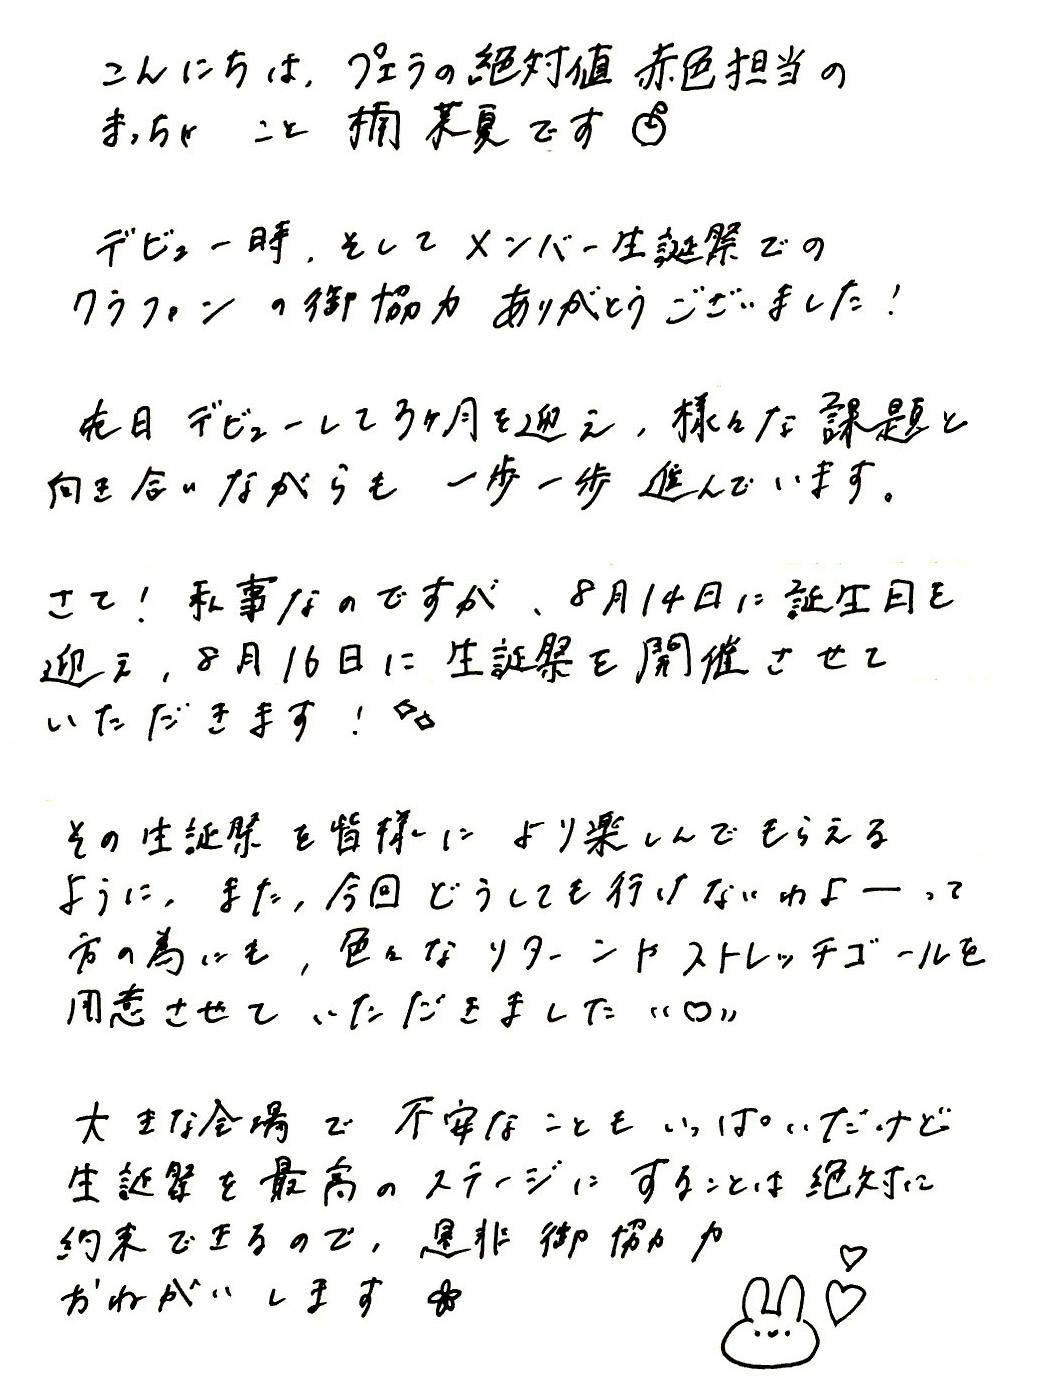 こんにちは、プェラの絶対値 赤色担当の
まっちゃ こと 楠 茉夏です
デビュー時、そして メンバー生誕祭での
クラファン の御協力 ありがとうございました！
先日 デビューして3ヶ月を迎え、様々な課題と
向き合いながらも 一歩一歩 進んでいます。
さて！ 私事なのですが、8月14日に誕生日を
迎え、8月16日に 生誕祭を開催させて
いただきます！
その生誕祭を皆様により楽しんでもらえる
ように、また、今回どうしても行けないわよーって
方の為にも、色々なリターンやストレッチゴールを
用意させていただきました
大きな会場で 不安なことも いっぱいだけど
生誕祭を最高のステージにすることは絶対に
約束できるので、是非 御協力
おねがいします